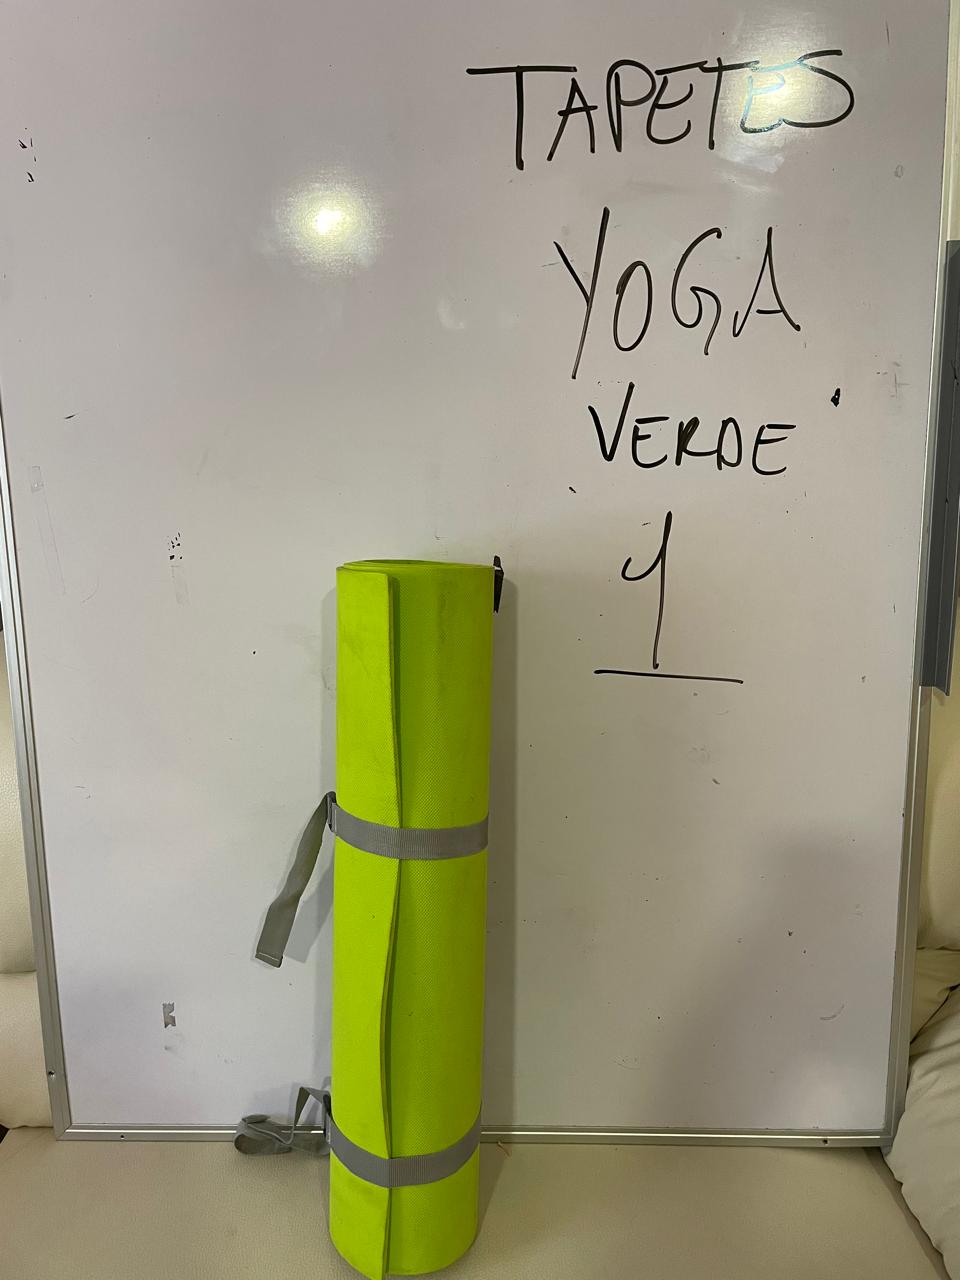 TAPETES
YOGA
VERDE
1